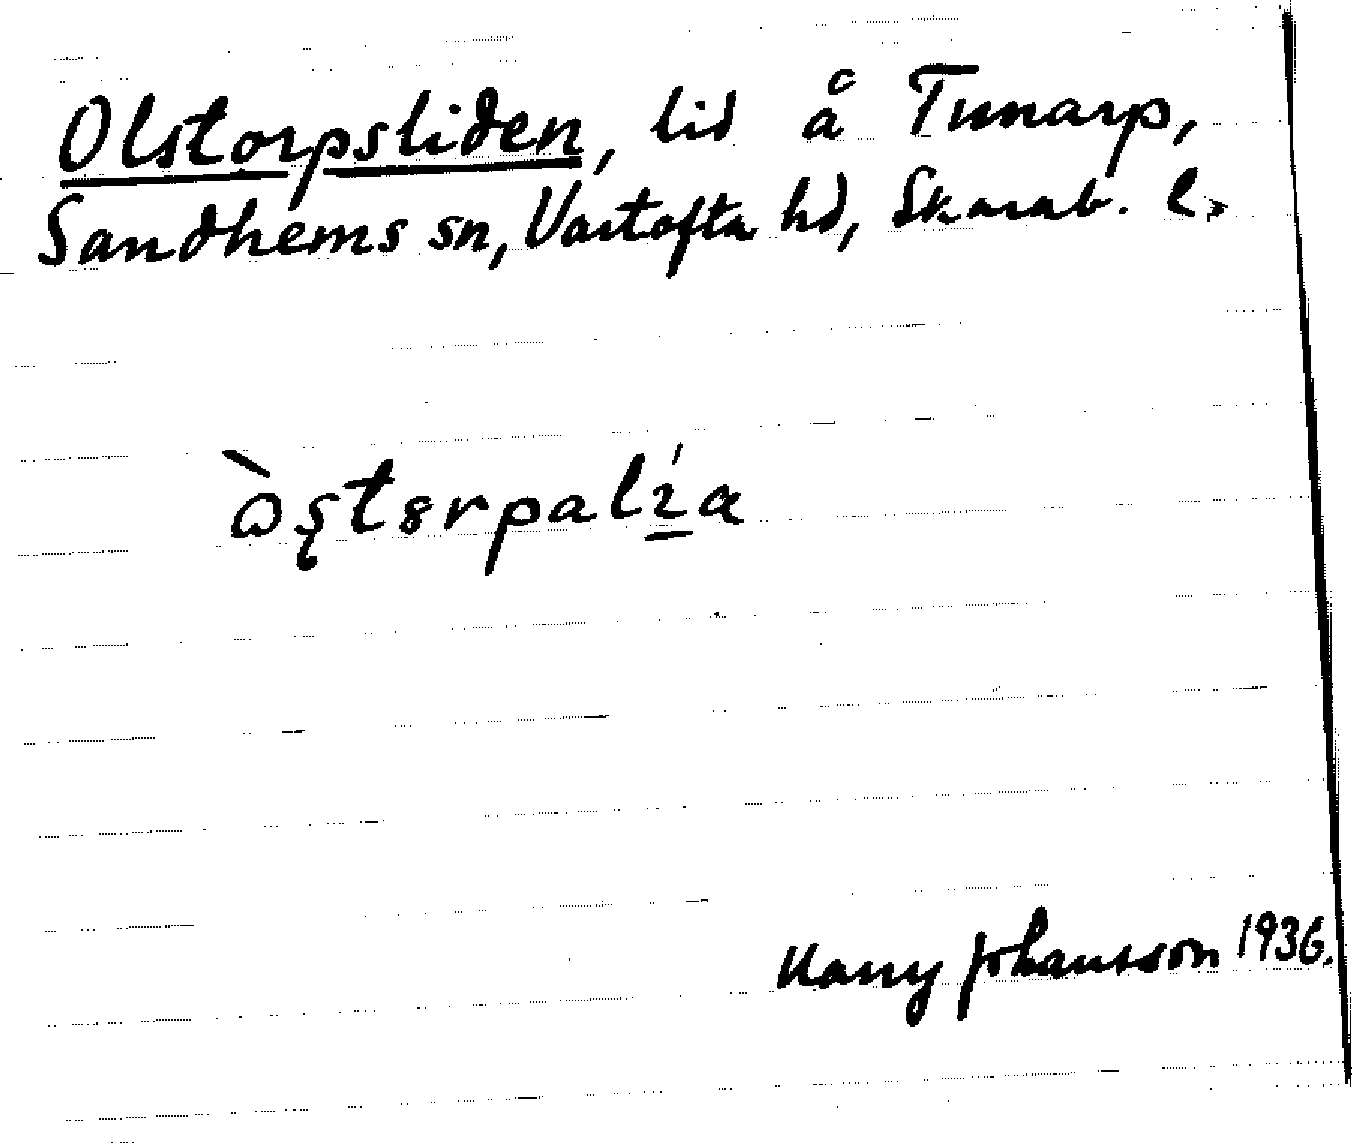 Olstorpsliden, lid å Tunarp,
Sandhems sn, Vartofta hd, Skarab. l.
Harry Johansson 1936.